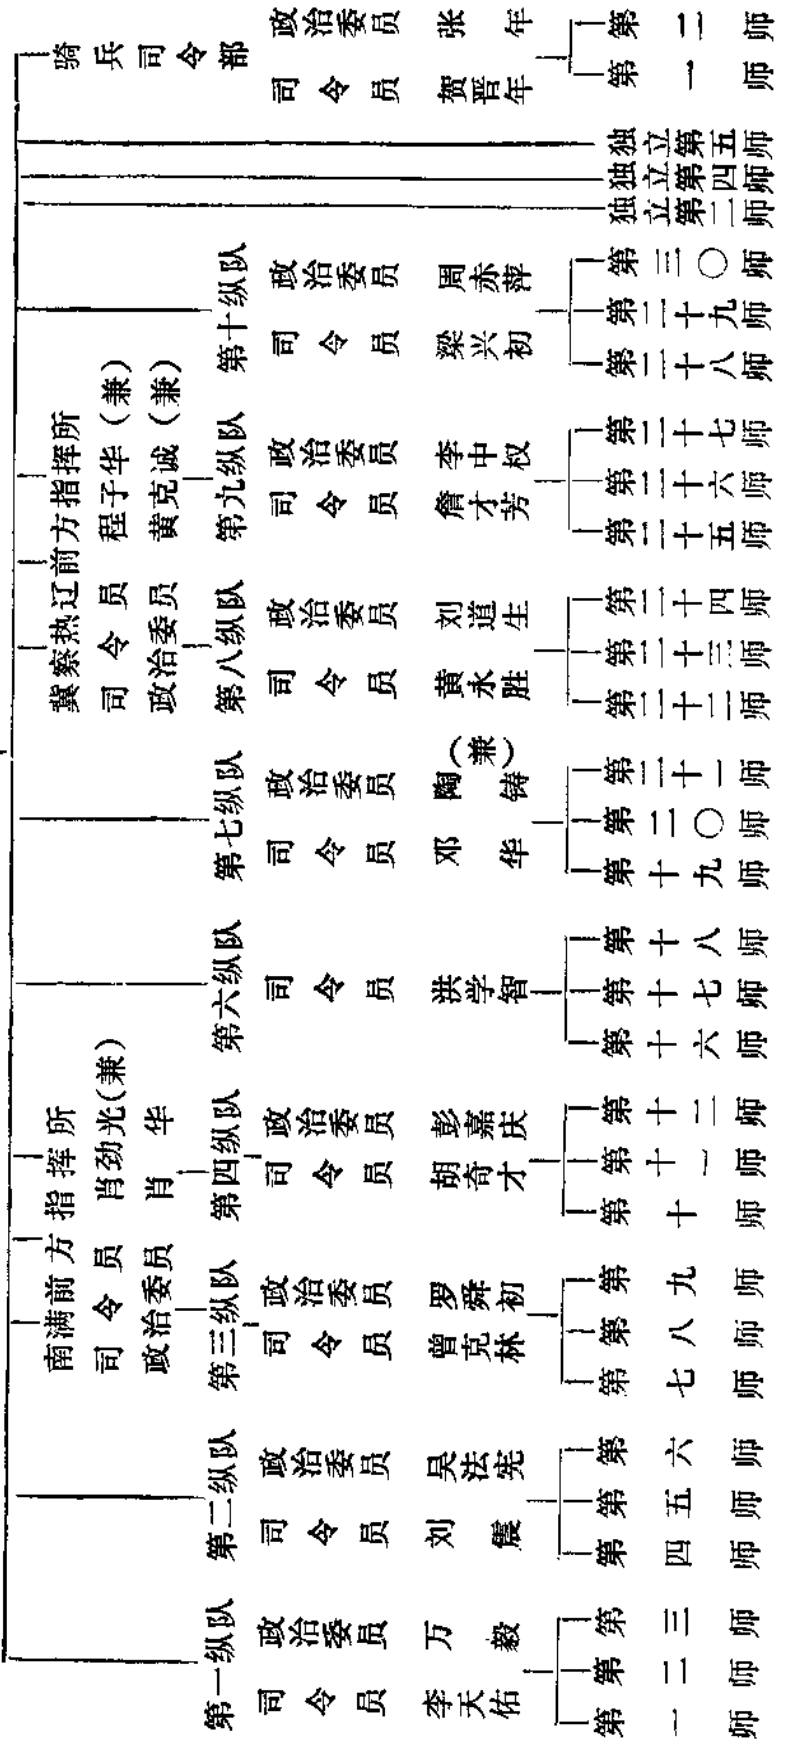 南满前方指挥所
司令员 肖劲光(兼)
政治委员 肖华
冀察热辽前方指挥所
司令员 程子华(兼)
政治委员 黄克诚(兼)
第一纵队
司令员 李天佑
政治委员 万毅
第一师
第二师
第三师
第二纵队
司令员 刘震
政治委员 吴法宪
第四师
第五师
第六师
第三纵队
司令员 曾克林
政治委员 罗舜初
第七师
第八师
第九师
第四纵队
司令员 胡奇才
政治委员 彭嘉庆
第十师
第十一师
第十二师
第六纵队
司令员 洪学智
第十六师
第十七师
第十八师
第七纵队
司令员 邓华
政治委员 陶铸(兼)
第十九师
第二〇师
第二十一师
第八纵队
司令员 黄永胜
政治委员 刘道生
第二十二师
第二十三师
第二十四师
第九纵队
司令员 詹才芳
政治委员 李中权
第二十五师
第二十六师
第二十七师
第十纵队
司令员 梁兴初
政治委员 周赤萍
第二十八师
第二十九师
第三〇师
独立第二师
独立第四师
独立第五师
骑兵司令部
司令员 贺晋年
政治委员 张年
第一师
第二师